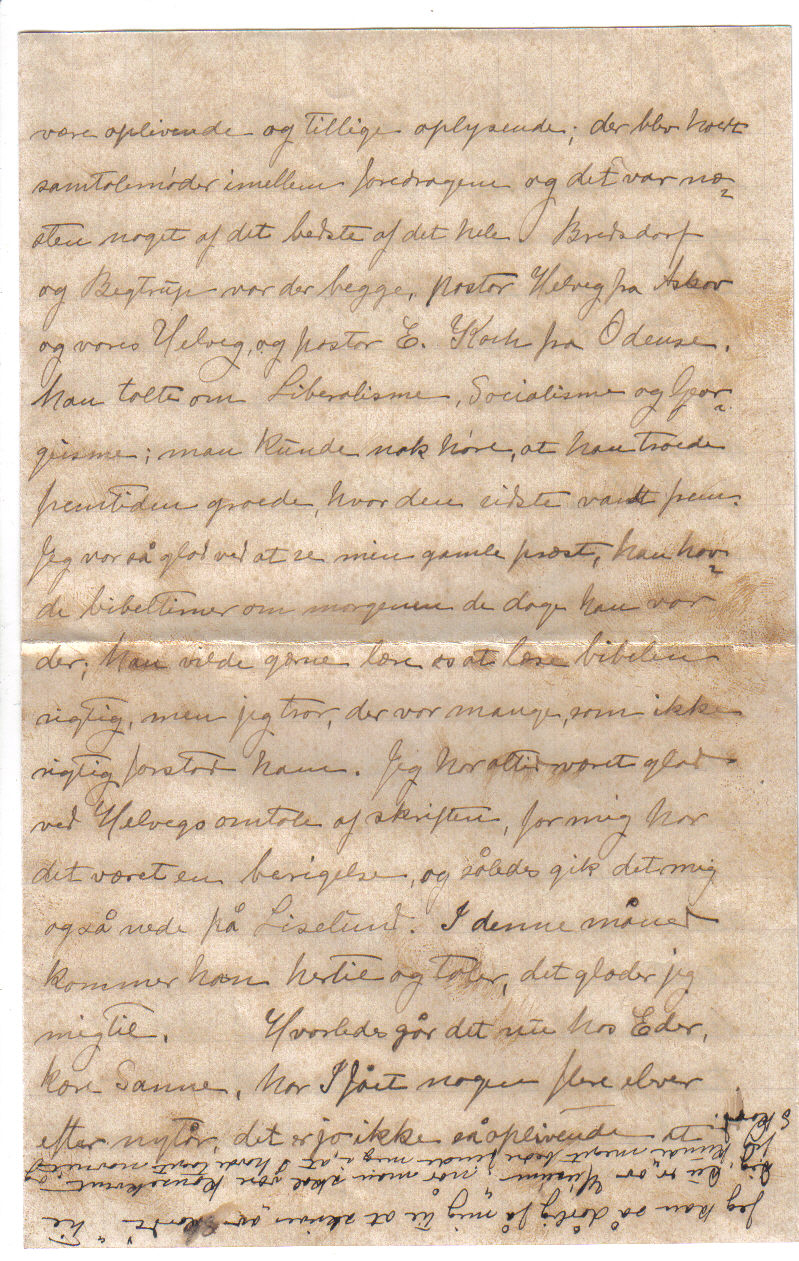 være oplivende og tillige oplysende; der blev holdt
samtalemøder imellem foredragene og det var næ-
sten noget af det bedste af det hele. Bredsdorf
og Begtrup var der begge, pastor Helveg fra Askov
og vores Helveg, og pastor E. Koch fra Odense.
han talte om Liberalisme, Socialisme og Geor-
gisme; man kunde nok høre, at han troede
fremtiden groede, hvor den sidste vandt frem.
Jeg var så glad ved at se min gamle præst, han hav-
de bibeltimer om morgenen de dage han var
der; han vilde gærne lære os at læse bibelen
rigtig, men jeg tror, der var mange, som ikke
rigtig forstod ham. Jeg har altid været glad
ved Helvegs omtale af skriften, for mig har
det været en berigelse, og således gik det mig
også nede på Liselund. I denne måned
kommer han hertil og taler, det glæder jeg
mig til. Hvorledes går det nu hos Eder,
kære Sanne, har I fået nogen flere elever
efter nytår, det er jo ikke så oplivende at
Jeg kan så dårlig få mig til at skrive
når man skal være
kunde meget bedre